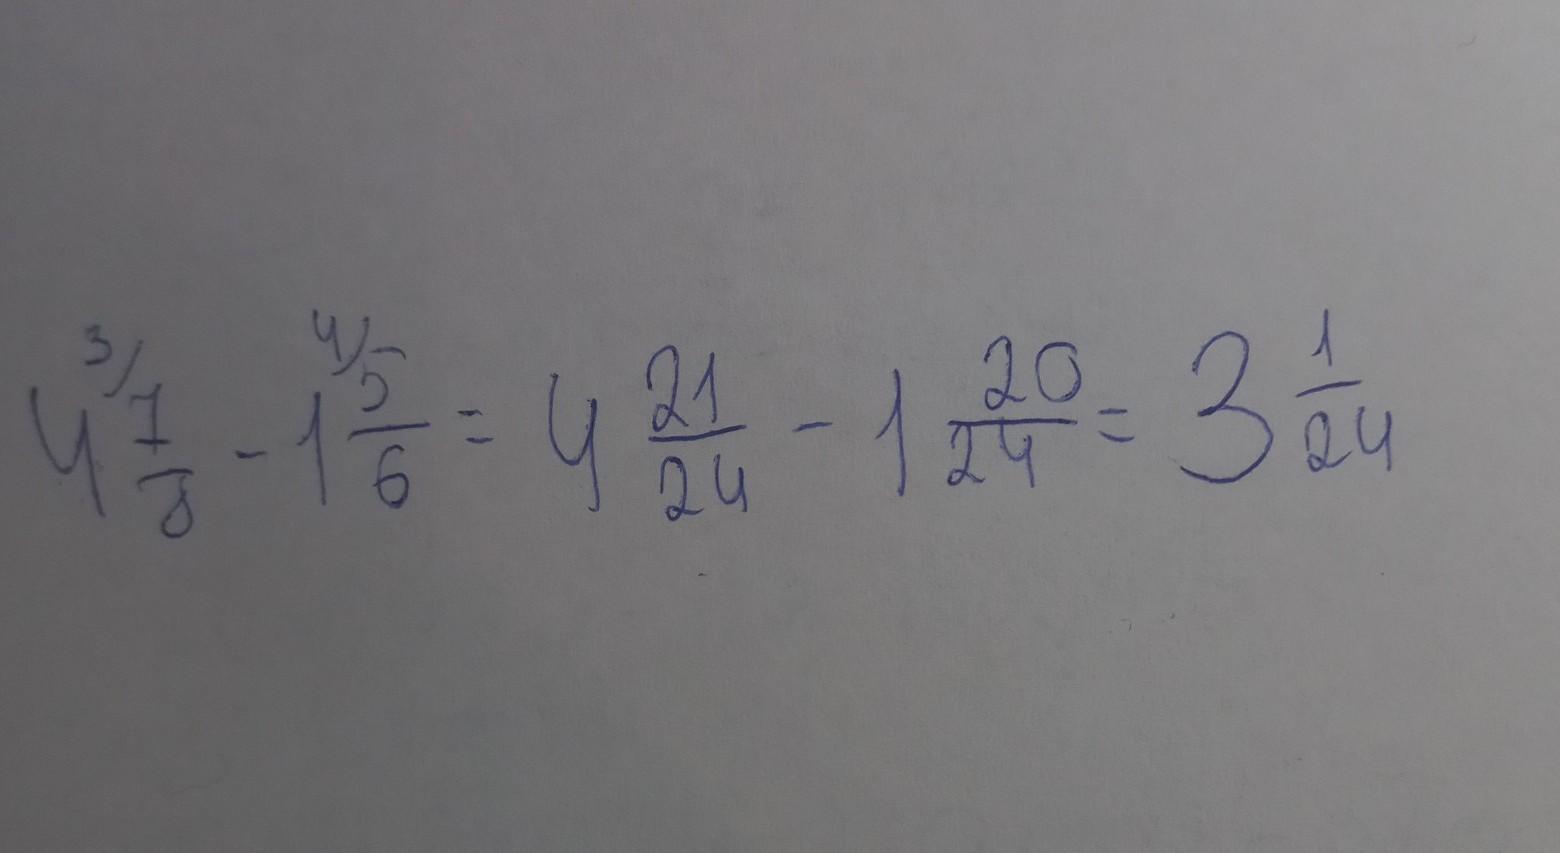 4 3/ 7/8 - 1 4/ 5/6 = 4 21/24 - 1 20/24 = 3 1/24